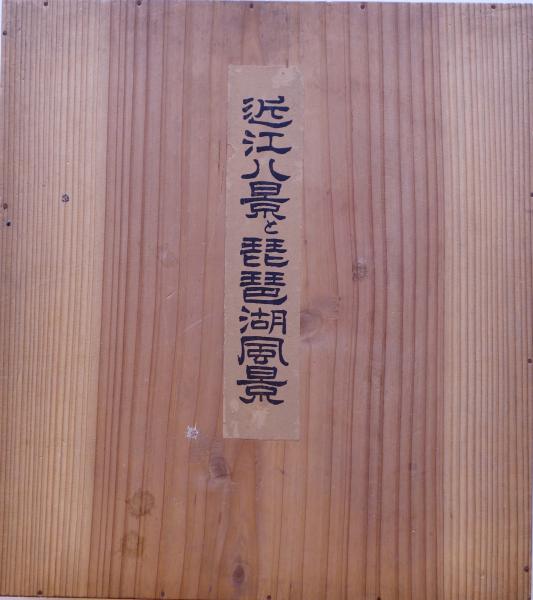 近江八景と琵琶湖風景